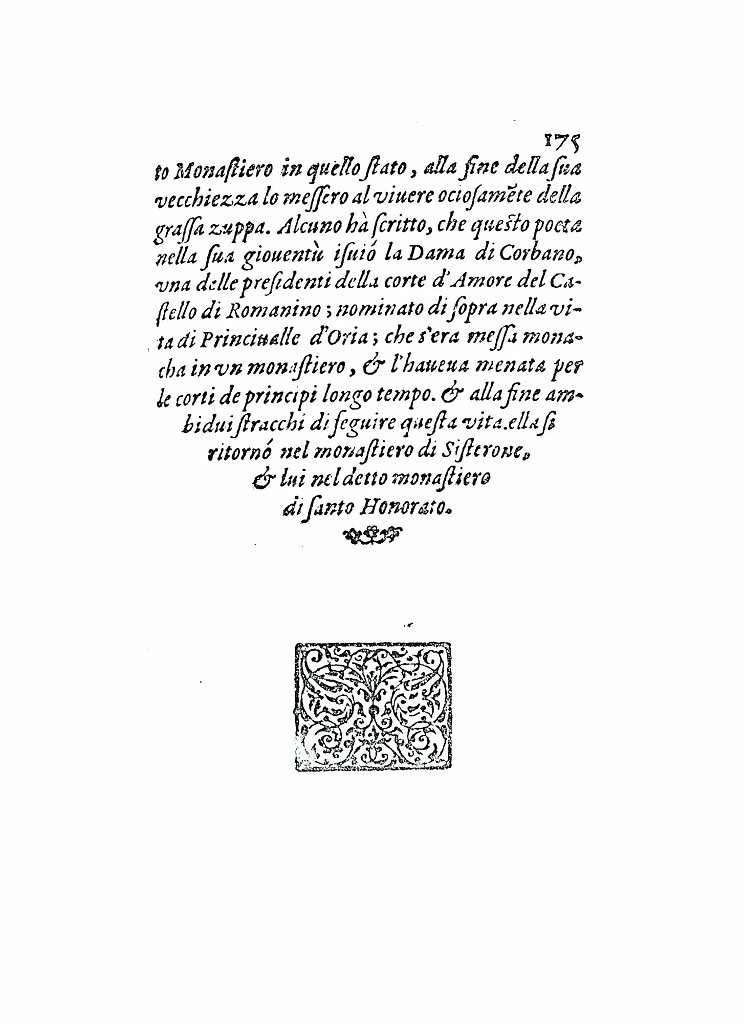 175
to Monaſtiero in quello ſtato, alla fine della ſua
vecchiezza lo meſſero al viuere ocioſamẽte della
graſſa zuppa. Alcuno hà ſcritto, che queſto poeta
nella ſua giouentù iſuió la Dama di Corbano,
vna delle preſidenti della corte d'Amore del Ca-
ſtello di Romanino; nominato di ſopra nella vi-
ta di Princiualle d'Oria; che s'era meſſa mona-
cha in vn monaſtiero, & l'haueua menata per
le corti de principi longo tempo. & alla fine am-
bidui ſtracchi di ſeguire queſta vita.ella ſi
ritornó nel monaſtiero di Siſterone,
& lui nel detto monaſtiero
di ſanto Honorato.